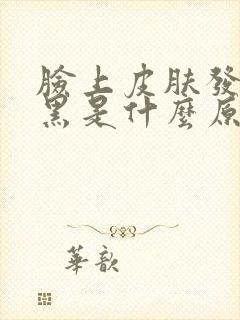 臉上皮肤發
黑是什麼原
華歆